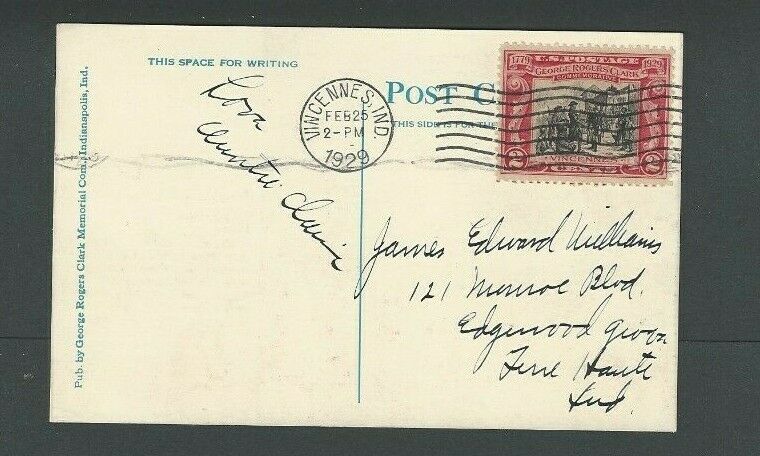 THIS SPACE FOR WRITING
Love
Auntie
Pub. by George Rogers Clark Memorial Com., Indianapolis, Ind.
VINCENNES, IND.
FEB 25
2-PM
1929
POST C
THIS SIDE IS FOR THE
1779 U.S. POSTAGE 1929
GEORGE ROGERS CLARK
COMMEMORATIVE
VINCENNES
2 CENTS 2
James Edward Williams
121 Monroe Blvd.
Edgewood Grove
Terre Haute
Ind.